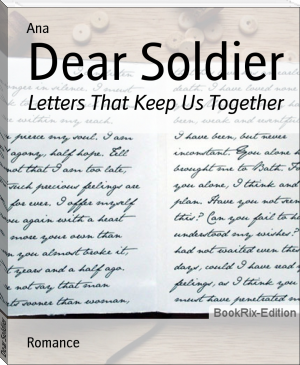 Ana
Dear Soldier
Letters That Keep Us Together
longer in silence. I must
within my reach.
pierce my soul. I am
agony, half hope. Tell
not that I am too late,
such precious feelings are
for ever. I offer myself
you again with a heart
more your own than
you almost broke it,
years and a half ago.
not say that man
sooner than woman,
I have been, but never
inconstant. You alone
brought me to Bath. For
you alone, I think and
plan. Have you not seen
this? Can you fail to have
understood my wishes?
had not waited even these
days, could I have read
feelings, as I think you
must have penetrated
BookRix-Edition
Romance
Dear Soldier